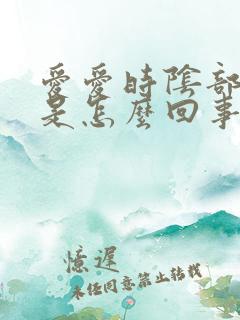 愛愛時陰部
是怎麼回事
憶遲
未任同意禁止转载